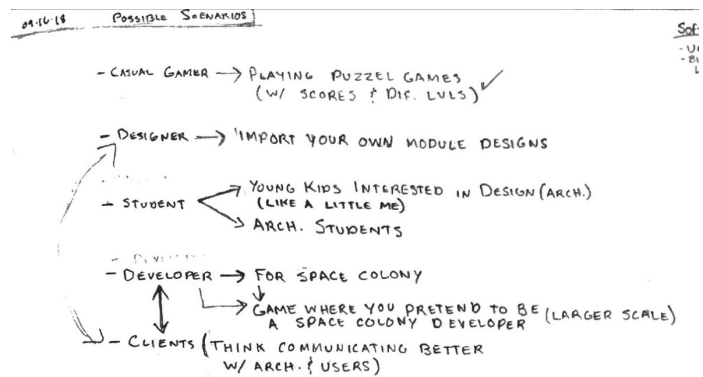 09.16.18 POSSIBLE SCENARIOS
Sof
- CASUAL GAMER → PLAYING PUZZEL GAMES ✓
(W/ SCORES & DIF. LVLS)
- DESIGNER → IMPORT YOUR OWN MODULE DESIGNS
- STUDENT → YOUNG KIDS INTERESTED IN DESIGN (ARCH.)
(LIKE A LITTLE ME)
→ ARCH. STUDENTS
- DEVELOPER → FOR SPACE COLONY
→ GAME WHERE YOU PRETEND TO BE (LARGER SCALE)
A SPACE COLONY DEVELOPER
- CLIENTS (THINK COMMUNICATING BETTER
W/ ARCH. & USERS)